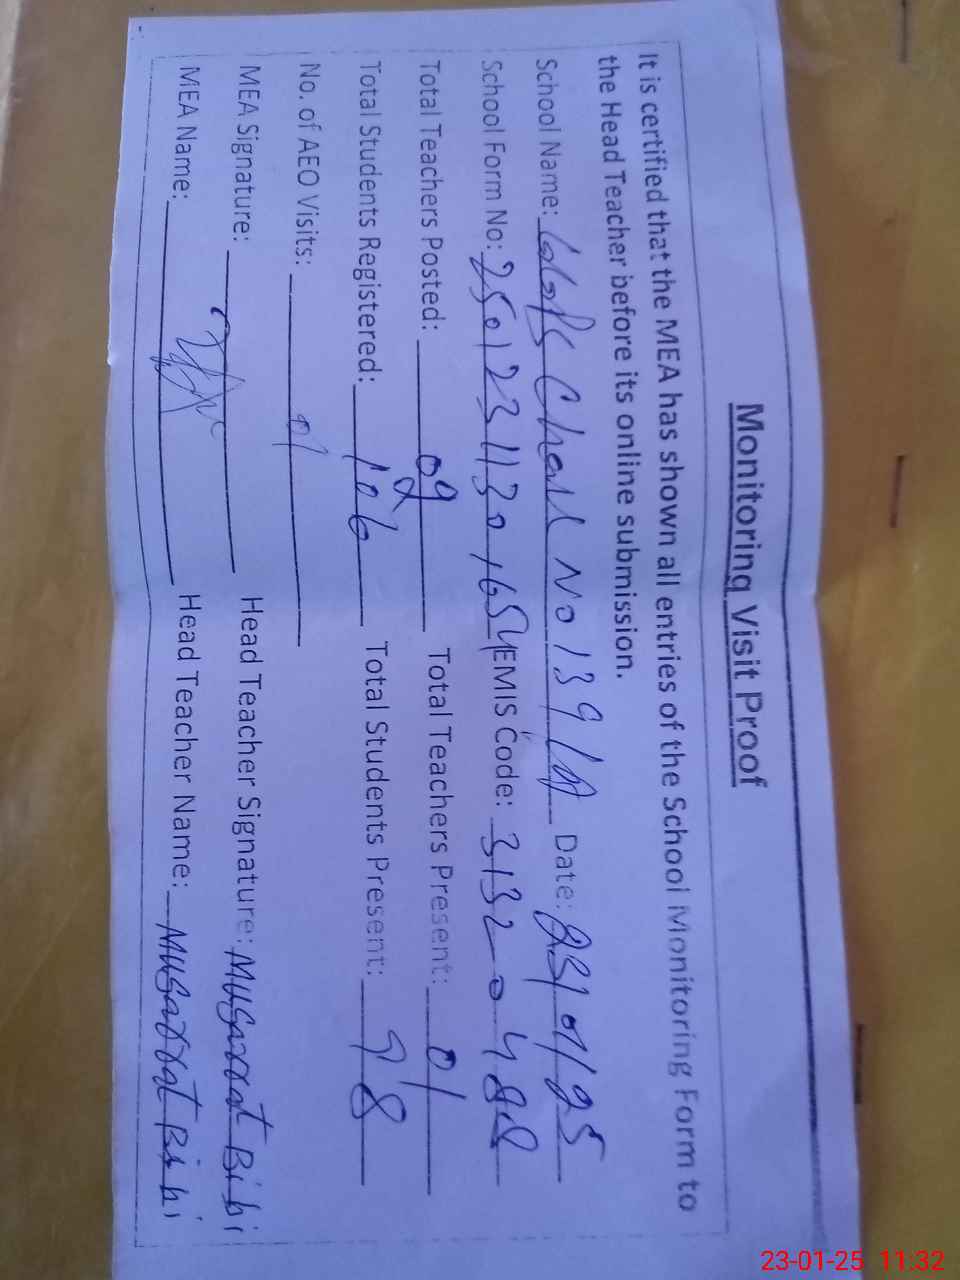 Monitoring Visit Proof
It is certified that the MEA has shown all entries of the School Monitoring Form to
the Head Teacher before its online submission.
School Name: Chak No 139 Date: 23/01/25
School Form No: 2501231130165 EMIS Code: 31320488
Total Teachers Posted: Total Teachers Present: 01
Total Students Registered: 106 Total Students Present: 98
No. of AEO Visits: 01
MEA Signature: Head Teacher Signature: Musarrat Bibi
MEA Name: Head Teacher Name: Musarrat Bibi
23-01-25 11:32